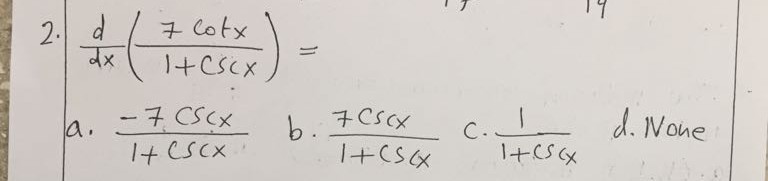 2. d/dx (7 cotx / 1+cscx) =
a. -7 cscx / 1+cscx b. 7 cscx / 1+cscx c. 1 / 1+cscx d. None